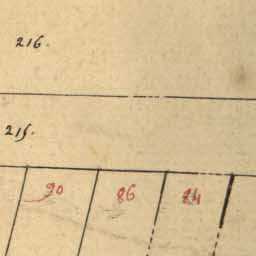 216.
215.
90 86 84